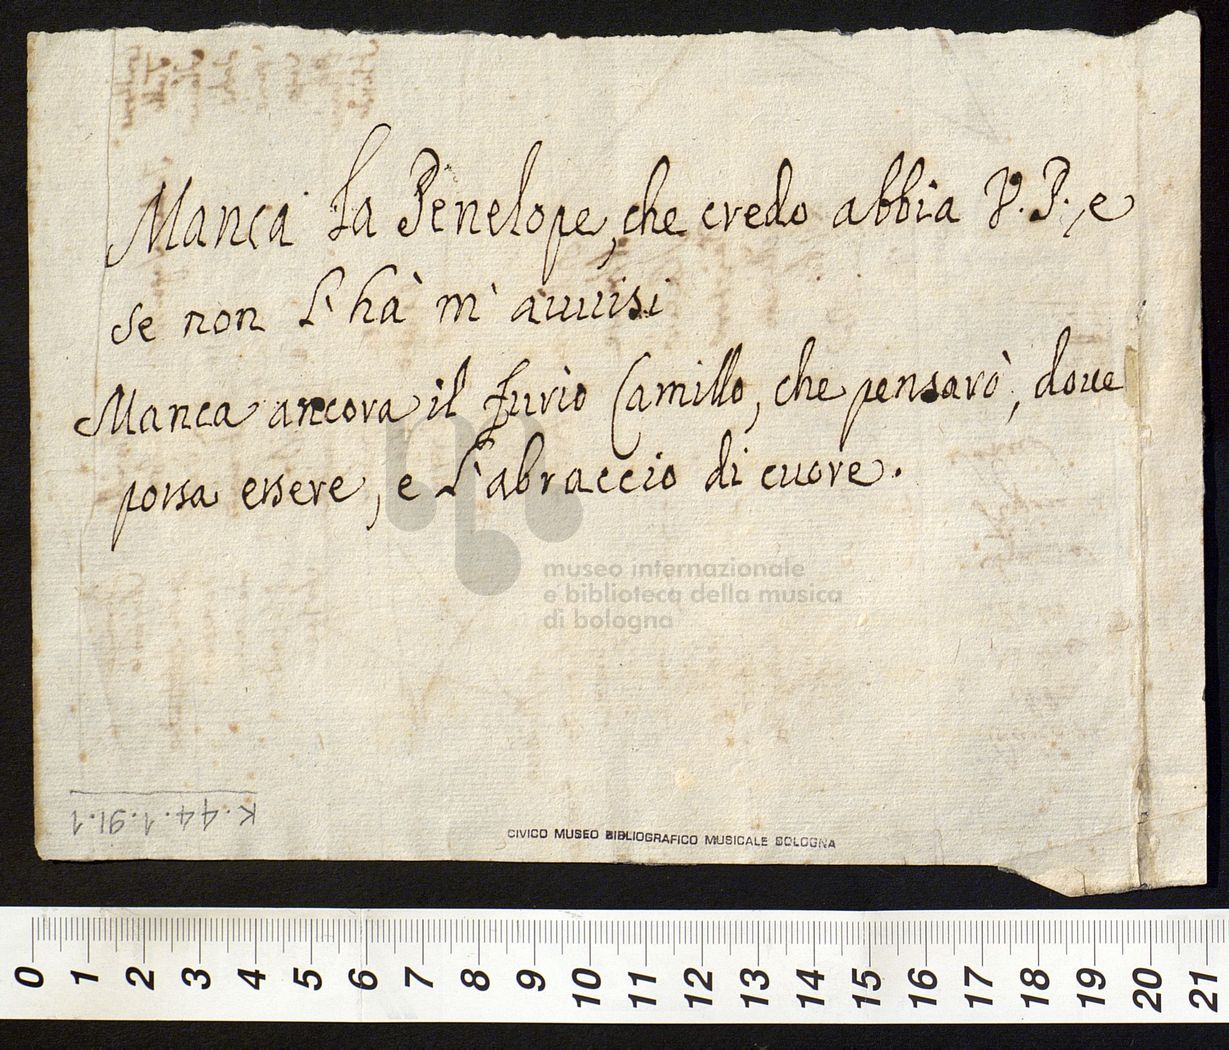 Manca La Penelope, che credo abbia V. P., e
se non L'hà m'auuisi
Manca ancora il Furio Camillo, che pensarò, doue
possa essere, e L'abraccio di cuore.
museo internazionale
e biblioteca della musica
di bologna
K.44.1.91.1
CIVICO MUSEO BIBLIOGRAFICO MUSICALE BOLOGNA
0 1 2 3 4 5 6 7 8 9 10 11 12 13 14 15 16 17 18 19 20 21